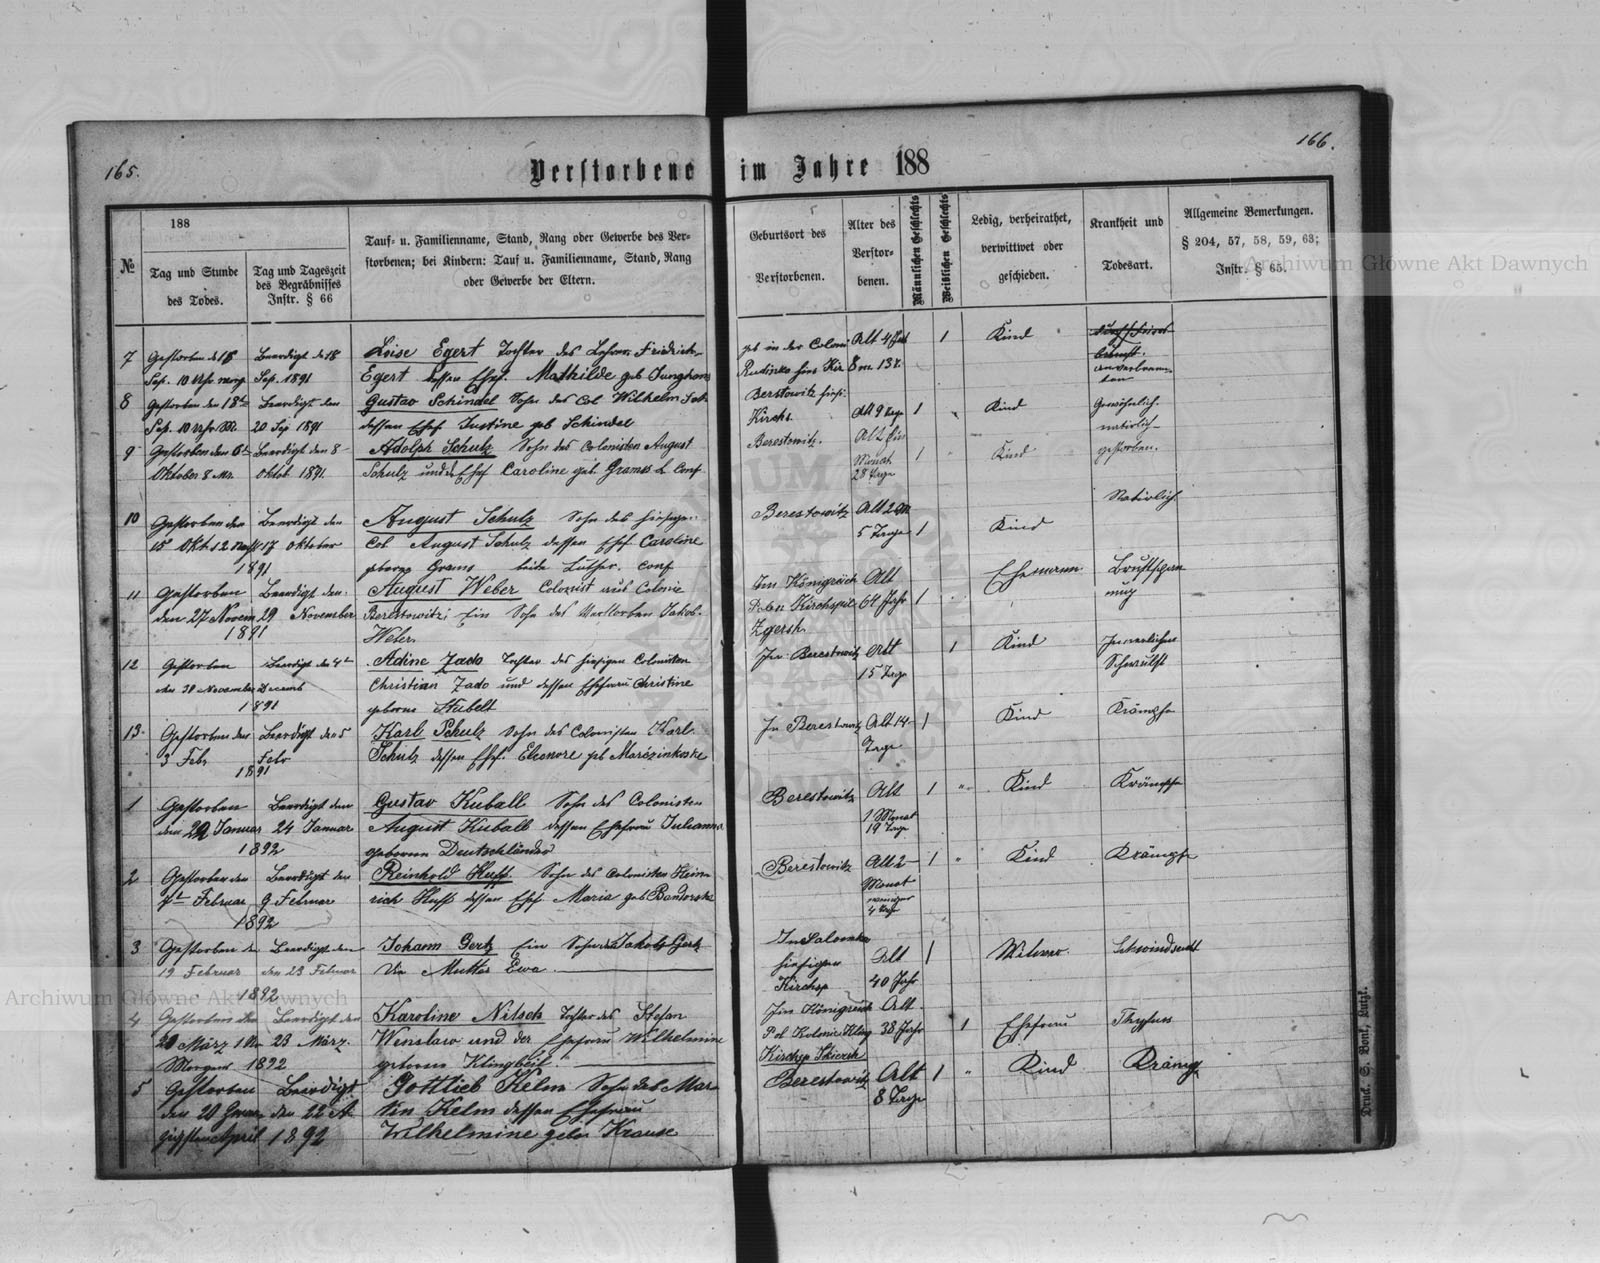 165.
166.
Verstorbene im Jahre 188
№
188
Tag und Stunde
des Todes.
Tag und Tageszeit
des Begräbnisses
Instr. § 66
Tauf- u. Familienname, Stand, Rang oder Gewerbe des Ver-
storbenen; bei Kindern: Tauf u. Familienname, Stand, Rang
oder Gewerbe der Eltern.
Geburtsort des
Verstorbenen.
Alter des
Verstor-
benen.
Männlichen Geschlechts
Weiblichen Geschlechts
Ledig, verheirathet,
verwittwet oder
geschieden.
Krankheit und
Todesart.
Allgemeine Bemerkungen.
§ 204, 57, 58, 59, 63;
Instr. § 65.
Archiwum Główne Akt Dawnych
7 Gestorben d 18 Beerdigt de 18 Loise Egert Tochter des Friedrich geb in der Coloni Alt 4 Jah 1 Kind
Sep. 10 Uhr morg Sep. 1891 Egert dessen Ehef. Mathilde geb Junghans Rudinko 8 m. 13 t.
8 Gestorben den 18te Beerdigt den Gustav Schindel Sohn des Col Wilhelm Sch Berstowitz Kind Gewöhnlich
Sep. 10 Uhr M. 20 Sep 1891 dessen Ehef Justine geb Schindel Kirchs. Alt 9 Tage 1 natürlich
9 Gestorben den 6te Beerdigt den 8 Adolph Schulz Sohn des Colonisten August Berestowitz. Alt Kind gestorben.
Oktober 8 Mr. Oktob 1891. Schulz und de Ehef Caroline geb. Grams L Conf Monat 1
28 Tage
Natürlich
10 Gestorben den Beerdigt den August Schulz Sohn des hiesigen Berestowitz Alt 2 M Kind
15 Okt. 12 17 Oktober Col August Schulz dessen Ehef Caroline 5 Tage 1
1891 geboren Grams beide Luther. Conf
11 Gestorben Beerdigt den August Weber Colonist aus Colonie Im Königreich Alt Ehemann
den 27 Novem 29 November Berestowitz; Ein Sohn des Verstorben Jakob Polen Kirchspiel 64 Jahr 1
1891 Weber Zgersh
12 Gestorben Beerdigt de 4te Adine Zado Tochter des hiesigen Colonisten In Berestowitz Alt 1 Kind Innerlichen
den 30 November Decemb Christian Zado und dessen Ehefrau Christine 15 Tage Schwulst
1891 geboren Stubelt
13. Gestorben den Beerdigt den 5 Karl Schulz Sohn des Colonisten Karl In Berestowitz Alt 14 1 Kind Krämpfe
3 Febr Febr Schulz dessen Ehef. Eleonore geb Marozinkoske Tage
1891
1 Gestorben Beerdigt den Gustav Kuball Sohn des Colonisten Berestowitz Alt 1 Kind Krämpfe
den 22 Januar 24 Januar August Kuball dessen Ehefrau Julianna 1 Monat
1892 geboren Deutschländer 19 Tage
2 Gestorben den Beerdigt den Reinhold Huff Sohn des Colonisten Hein Berestowitz Alt 2 1 Kind Krämpfe
7te Februar 9 Februar rich Huff dessen Ehef Maria geb Bandorske Monat
1892 weniger
4 Tage
3 Gestorben de Beerdigt den Johann Gertz Ein Sohn des Jakob Gertz In Salomka Alt 1 Witwer Schwindsucht
19 Februar den 23 Februar Die Mutter Ewa hiesigen 40 Jahr
1892 Kirchsp
4 Gestorben den Beerdigt den Karoline Nitsch Tochter des Stefan Im Königreich Alt 1 Ehefrau Thyfus
20 März 1 Uhr 23 März Wenslaw und der Ehefrau Wilhelmine Pol Kolonie Kling 38 Jahr
Morgens 1892 geboren Klingbeil. Kirchsp
5 Gestorben Beerdigt Gottlieb Kelm Sohn des Mar Berestowitz Alt 1 Kind Krämp
den 20 den 22 A tin Kelm dessen Ehefrau 8 Tage
April 1892 Wilhelmine gebor Krause
Archiwum Główne Akt Dawnych